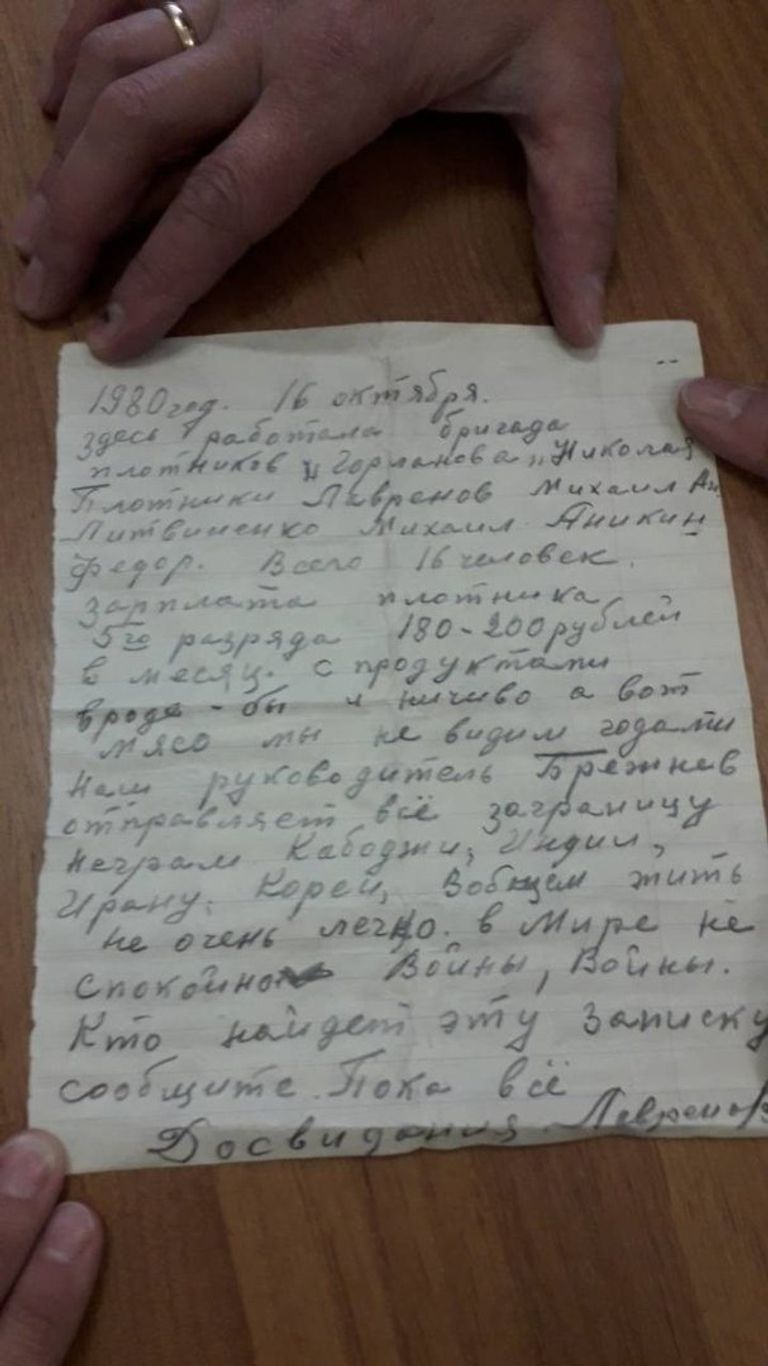 1980 год. 16 октября.
здесь работала бригада
плотников „Горланова„ Николая
Плотники Лавренов Михаил Ан.
Литвиненко Михаил. Аникин
Федор. Всего 16 человек.
Зарплата плотника
5го разряда 180-200 рублей
в месяц. с продуктами
вроде-бы и ничиво а вот
мясо мы не видим годами
Наш руководитель Брежнев
отправляет всё заграницу
неграм Кабоджи, Индии,
Ирану. Кореи, Вобщем жить
не очень легко. в Мире не
спокойно Войны, Войны.
Кто найдет эту Записку
сообщите. Пока всё
Досвидания. Лавренов